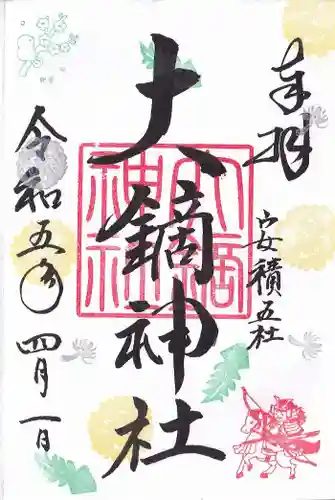 奉拝
安積五社
大鏑神社
大鏑神社
令和五年 四月一日